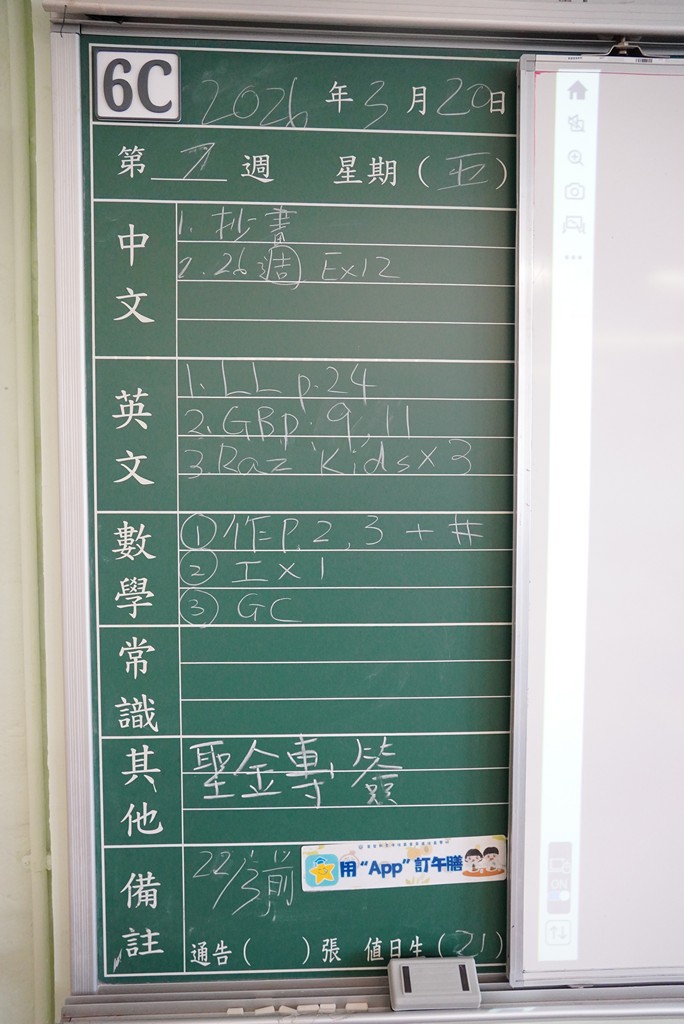 6C 2026 年 3 月 20 日
第 7 週 星期 ( 五 )
中文
1. 抄書
2. 26週 Ex12
英文
1. LL p.24
2. GBp. 9, 11
3. Raz Kids x 3
數學
① 作P.2, 3 + #
② 工 x 1
③ GC
常識
其他
聖金專
備註
22/3前
用 “App” 訂午膳
通告 ( ) 張 值日生 ( 21 )
ON